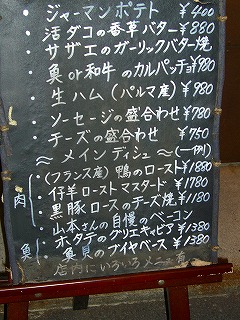 ・ジャーマンポテト ¥400
・活ダコの香草バター ¥880
・サザエのガーリックバター焼
・魚or和牛のカルパッチョ ¥980
・生ハム(パルマ産) ¥980
・ソーセージの盛合わせ ¥780
・チーズの盛合わせ ¥750
〜メインディシュ〜(一例)
肉
(フランス産)鴨のロースト ¥1880
仔羊ローストマスタード ¥1780
黒豚ロースのチーズ焼 ¥1180
山本さんの自慢のベーコン
魚
ホタテのグリエキャビア ¥1380
魚貝のブイヤベース ¥1380
店内にいろいろメニュー有